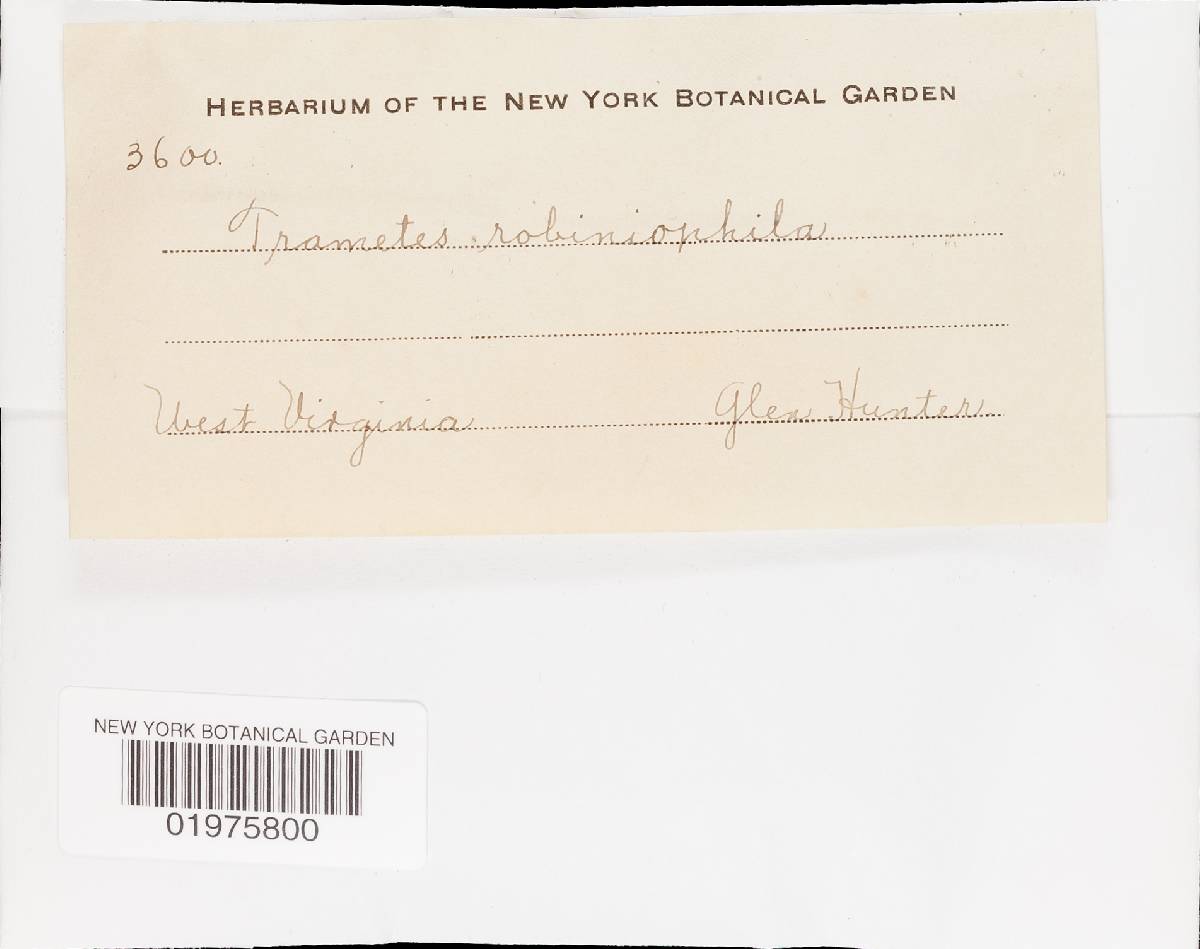 HERBARIUM OF THE NEW YORK BOTANICAL GARDEN
3600.
Trametes robiniophila
West Virginia Glen Hunter
NEW YORK BOTANICAL GARDEN
01975800